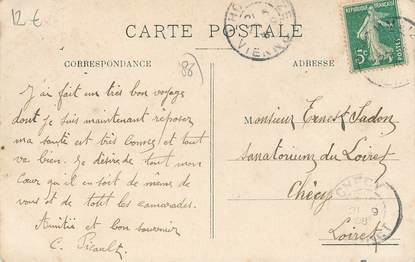 12 €
CARTE POSTALE
CORRESPONDANCE
(86)
ADRESSE
REPUBLIQUE FRANÇAISE
5c
POSTES
VIENNE
J'ai fait un très bon voyage
dont je suis maintenant reposez
ma santé est très bonne et tout
va bien. Je désire de tout mon
cœur qu'il en soit de même de
vous et de totit les camarades.
Amitiés et bon souvenir
C. Pirault
Monsieur Ernest Jadon
Sanatorium du Loiret
Chécy
Loiret
CHECY